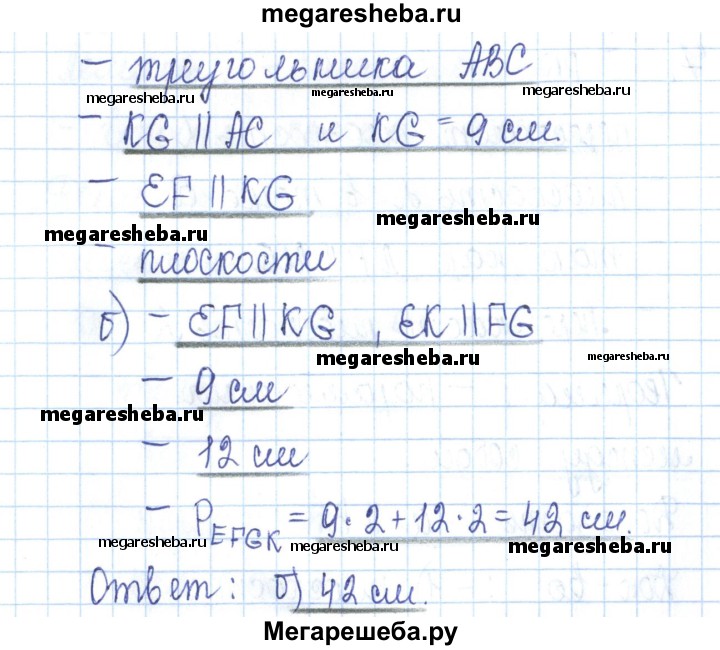 megaresheba.ru
– треугольника ABC
megaresheba.ru megaresheba.ru megaresheba.ru
– KG || AC и KG = 9 см.
– EF || KG
megaresheba.ru
megaresheba.ru
– плоскости
б) – EF || KG , EK || FG
megaresheba.ru megaresheba.ru
– 9 см
megaresheba.ru
– 12 см
– P EFGK = 9·2+12·2=42 см.
megaresheba.ru megaresheba.ru megaresheba.ru
Ответ: б) 42 см.
Мегарешеба.ру